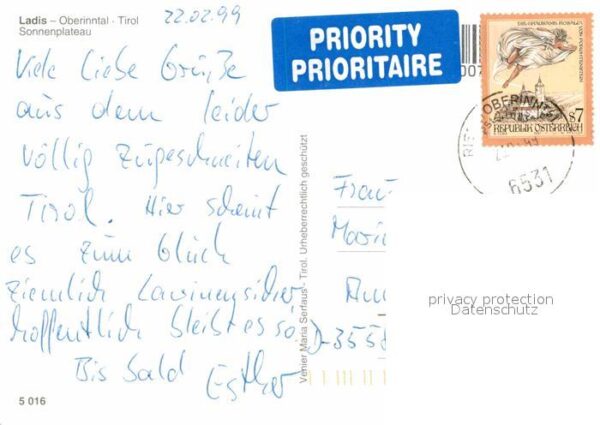 Ladis – Oberinntal · Tirol
Sonnenplateau
22.02.99
Viele liebe Grüße
aus dem leider
völlig zugeschneiten
Tirol. Hier scheint
es zum Glück
ziemlich Lawinensicher
hoffentlich bleibt es so,
Bis bald Esther
5 016
Venier Maria Serfaus - Tirol. Urheberrechtlich geschützt
PRIORITY
PRIORITAIRE
007
VON FORCHTENSTEIN
S7
REPUBLIK ÖSTERREICH
OBERINNTAL
RIE
6531
Frau
Mari
D-355
privacy protection
Datenschutz